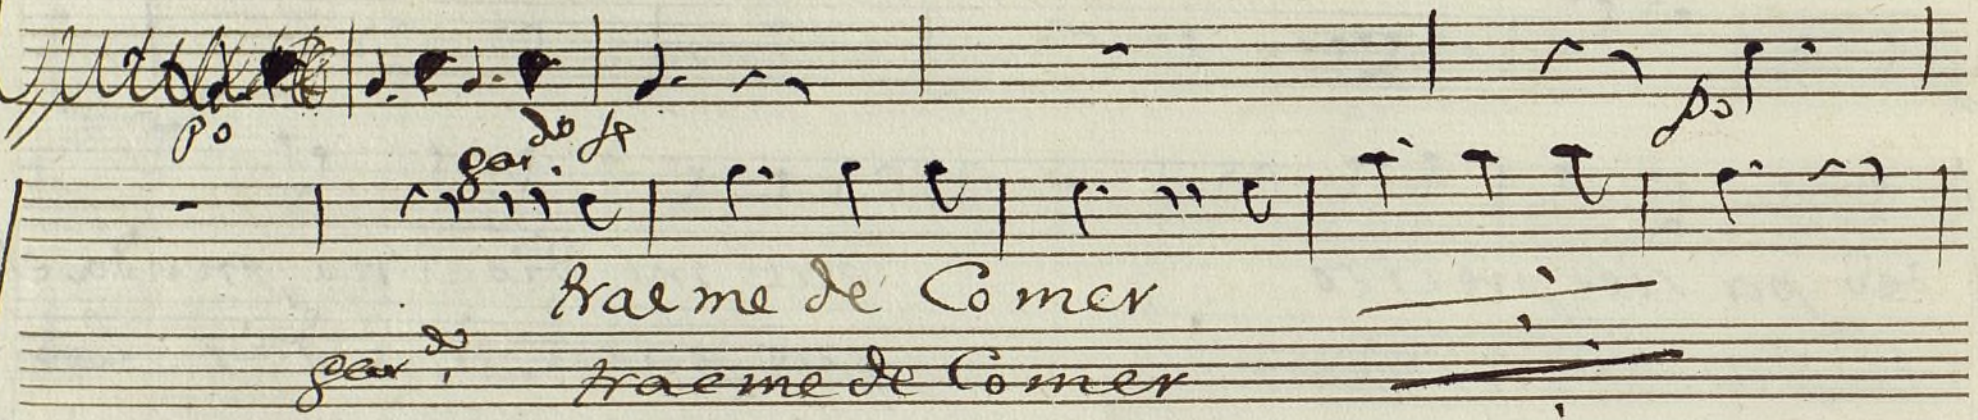 po po
gar.do fe
traeme de Comer
gar.do traeme de Comer